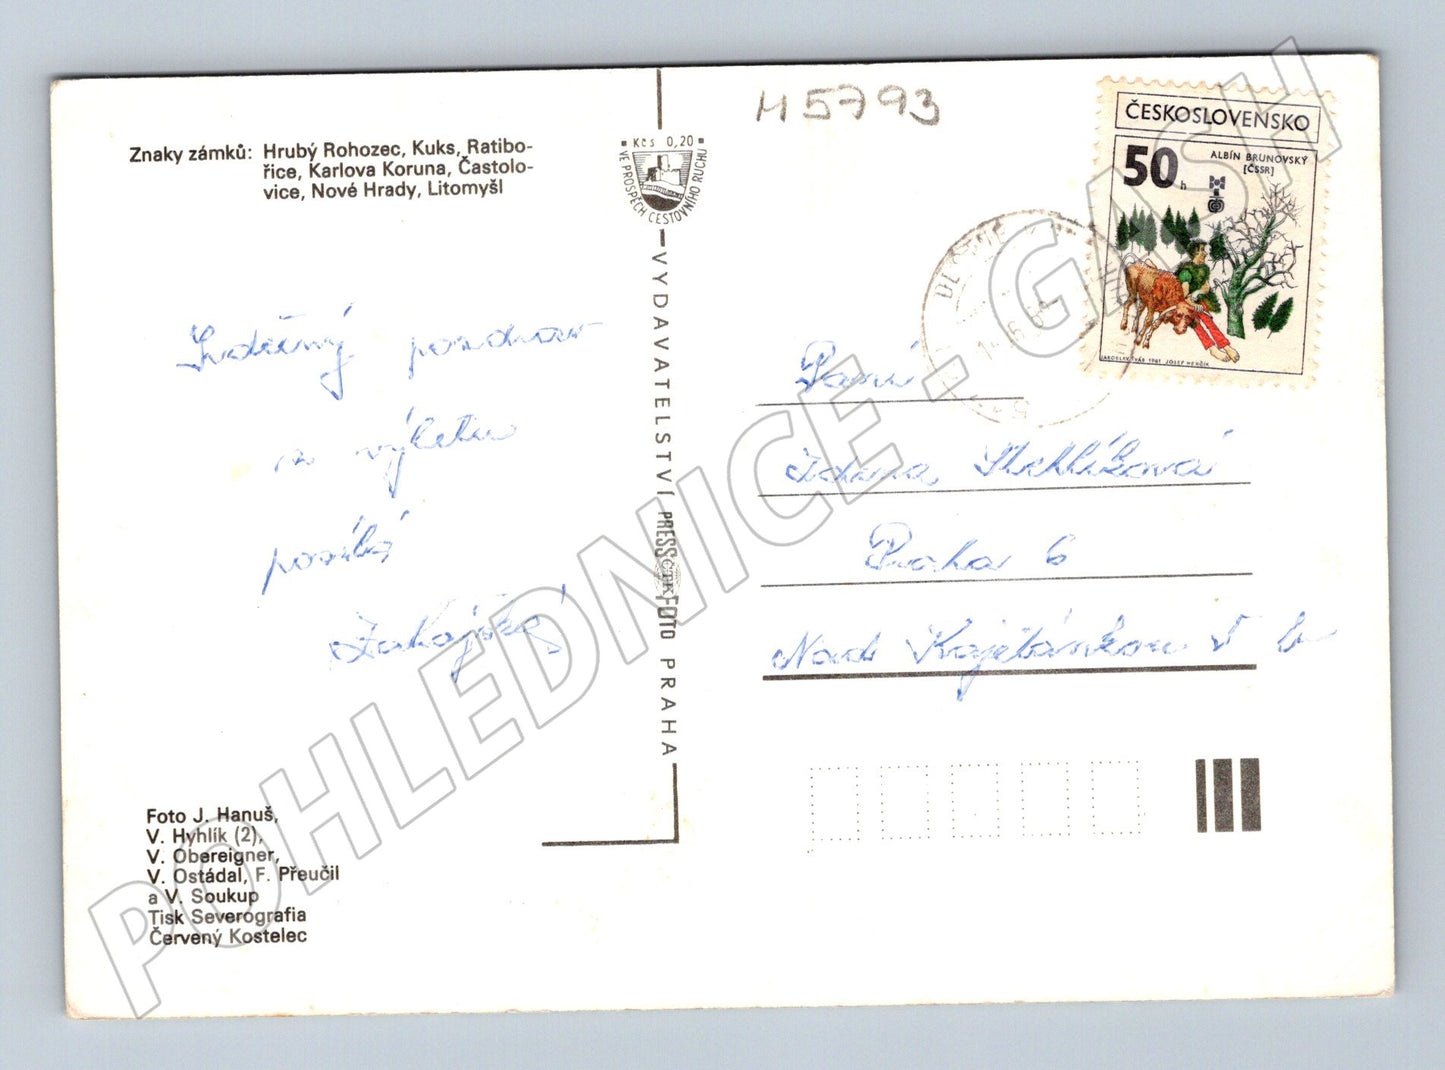 H 5793
Znaky zámků: Hrubý Rohozec, Kuks, Ratibo-
řice, Karlova Koruna, Častolo-
vice, Nové Hrady, Litomyšl
Kčs 0,20
VE PROSPĚCH CESTOVNÍHO RUCHU
ČESKOSLOVENSKO
50 h
ALBÍN BRUNOVSKÝ
[ČSSR]
JAROSLAV ŠVÁB 1981 JOSEF HERČÍK
Srdečný pozdrav
z výletu
posílá
VYDAVATELSTVÍ PRESSFOTO PRAHA
ČTK
Paní
Zdena Stehlíková
Praha 6
Nad Kajetánkou
Foto J. Hanuš,
V. Hyhlík (2),
V. Obereigner,
V. Ostádal, F. Přeučil
a V. Soukup
Tisk Severografia
Červený Kostelec
POHLEDNICE - GASH